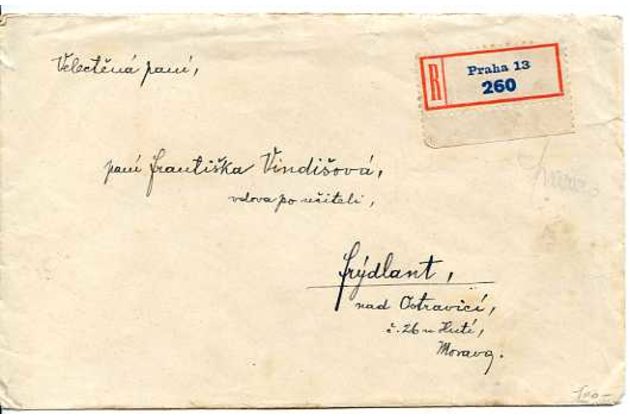 Velectěná paní,
R
Praha 13
260
paní Františka Vindišová,
vdova po učiteli,
Frýdlant,
nad Ostravicí,
č. 26 u Huti,
Morava.